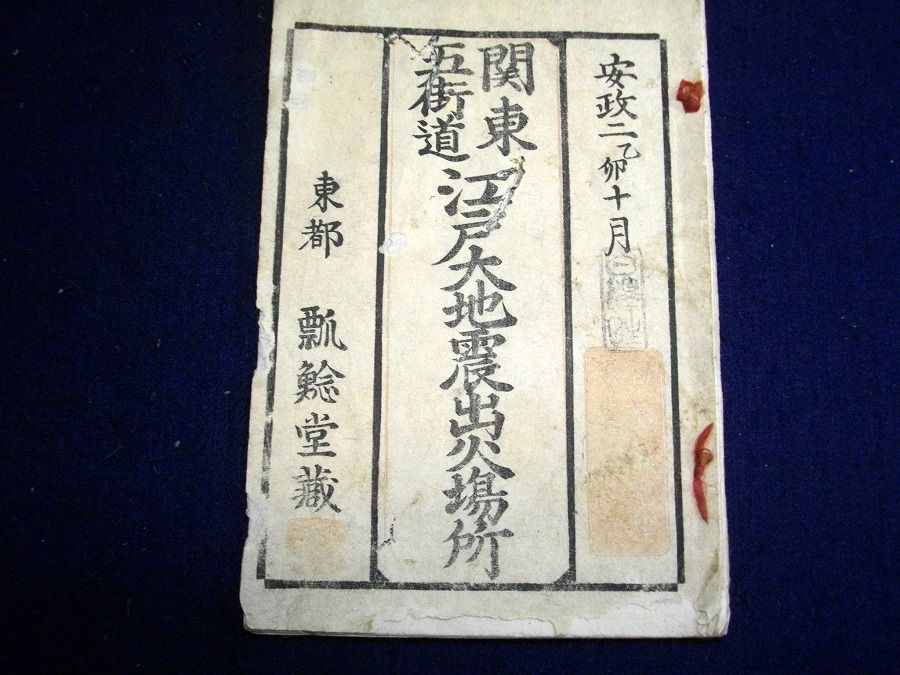 安政二乙卯十月
関東
五街道
江戸大地震出火場所
東都 瓢鯰堂藏